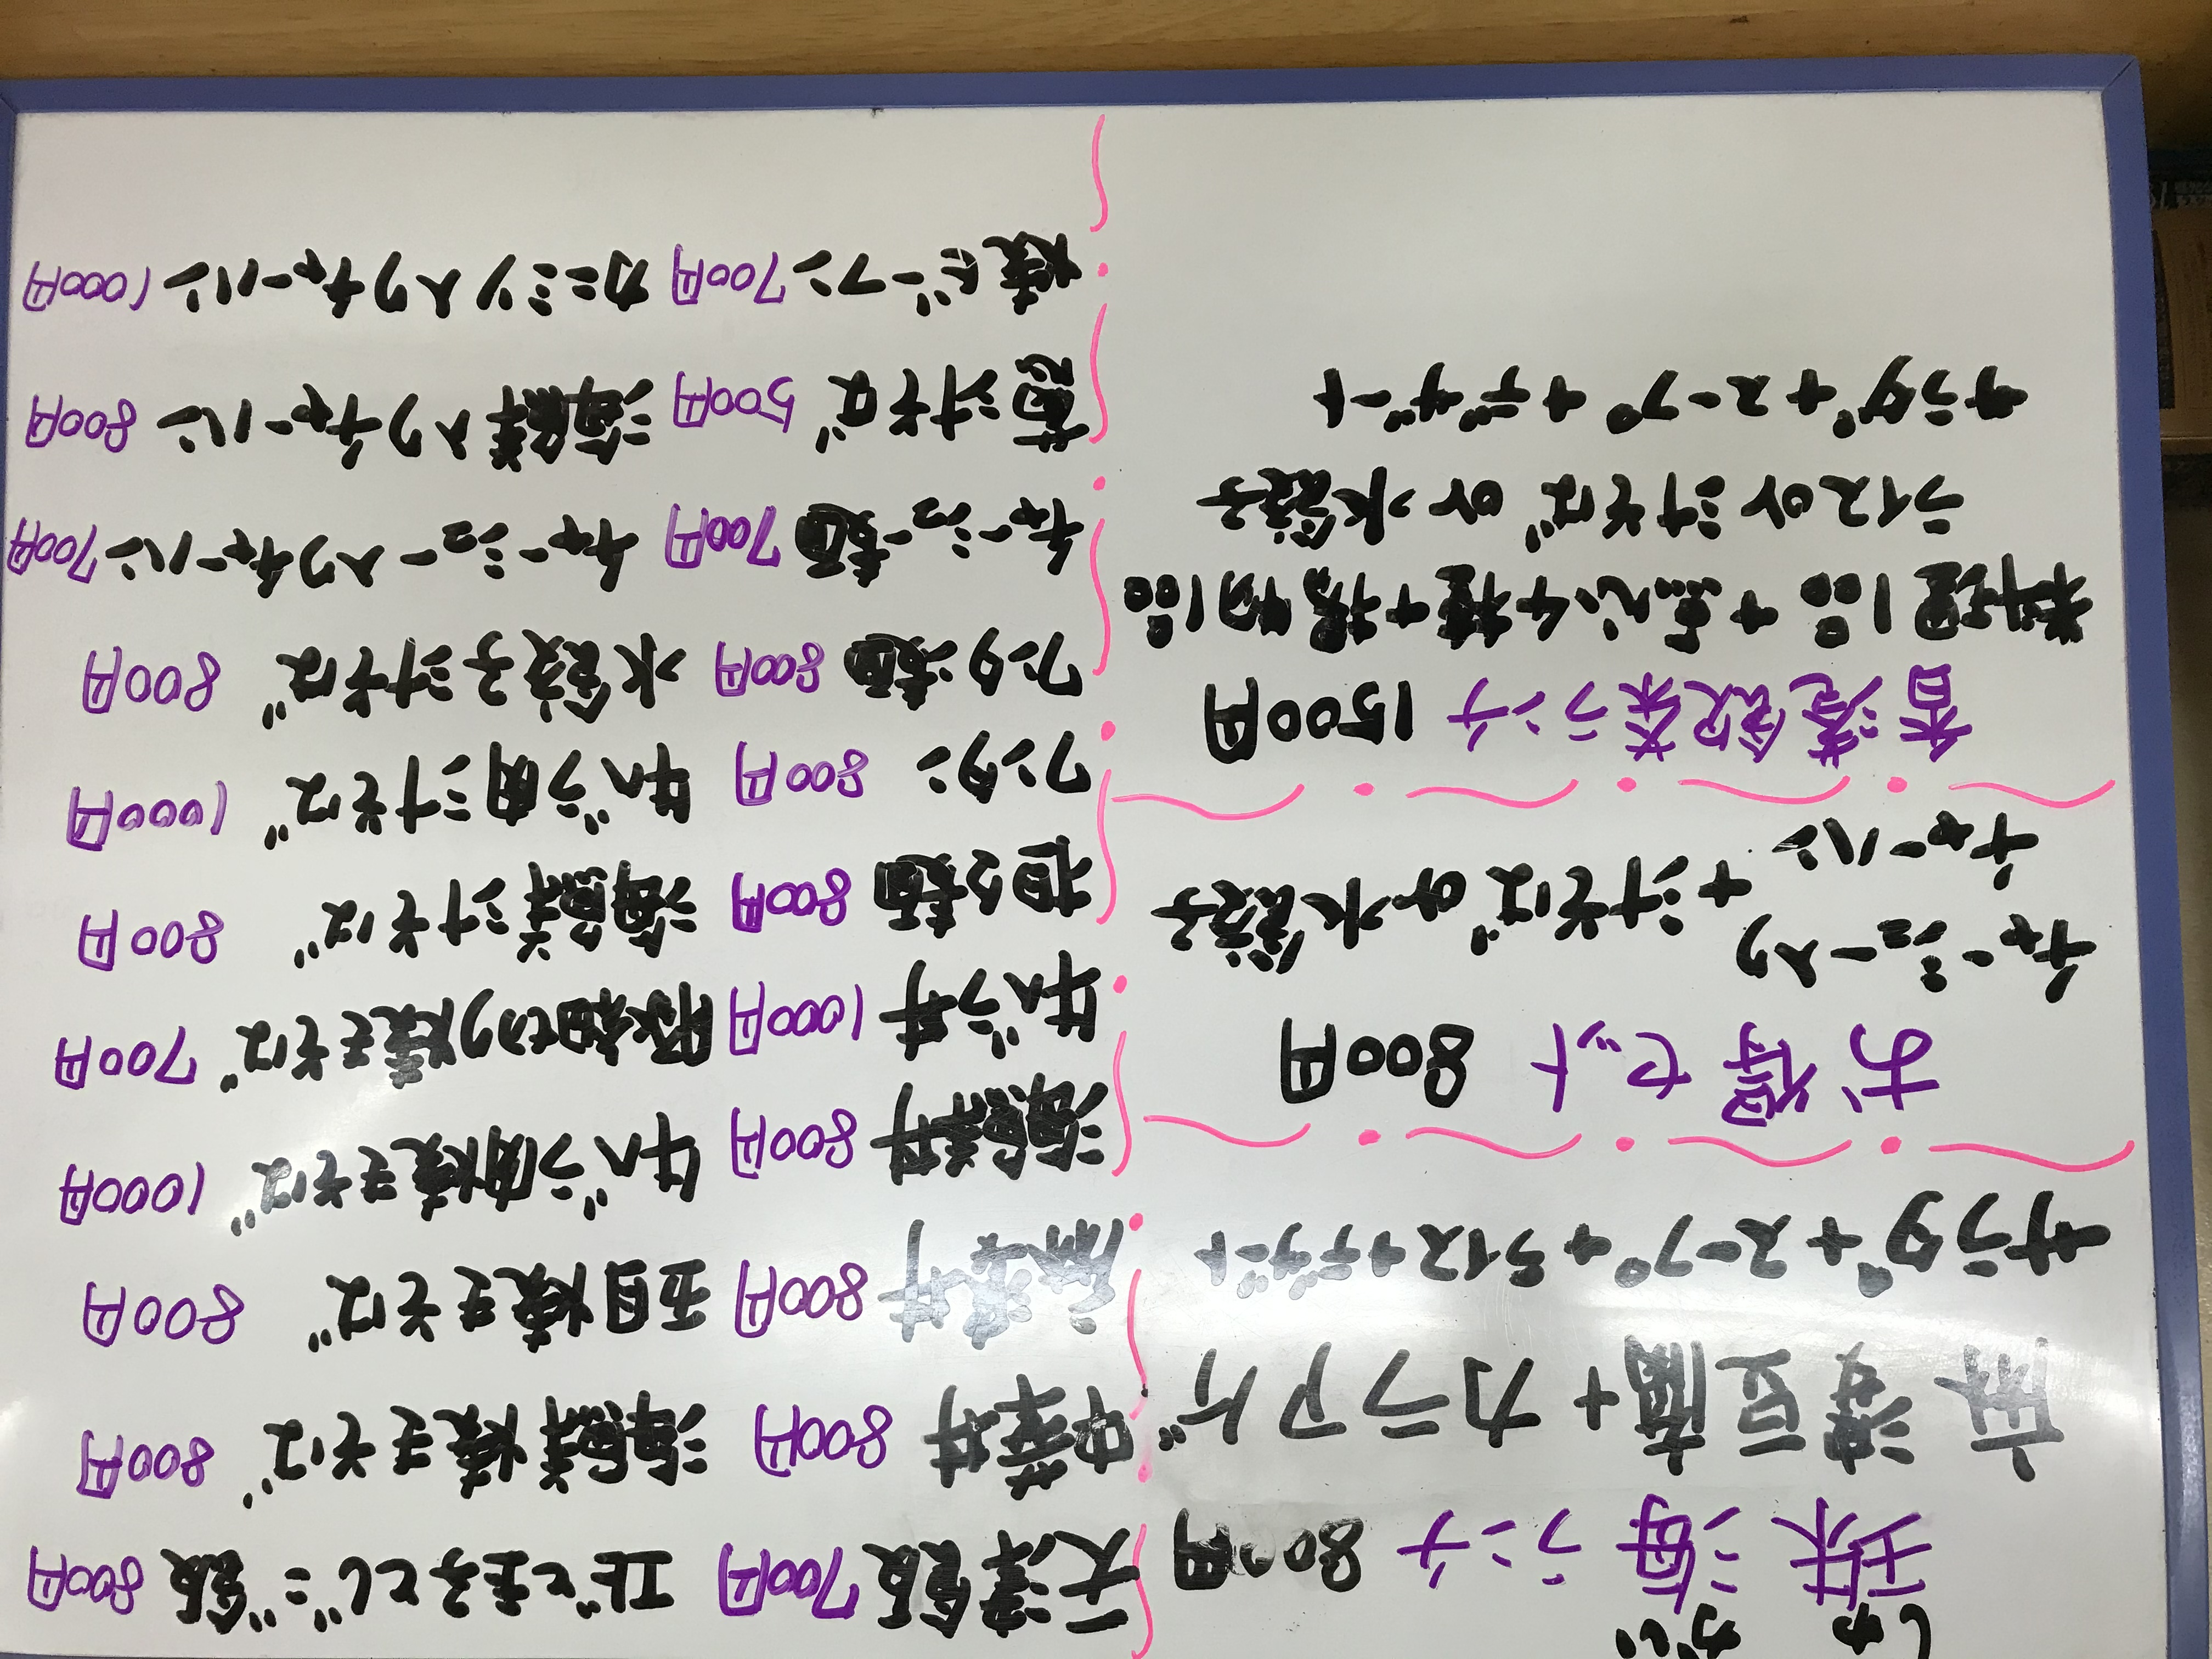 しゅ かい
珠海ランチ 800円
麻婆豆腐+カラアゲ
サラダ+スープ+ライス+デザート
お得セット 800円
チャーシュー入り
チャーハン+汁そばor水餃子
香港飲茶ランチ 1500円
料理1品+点心4種+揚物1品
ライスor汁そばor水餃子
サラダ+スープ+デザート
天津飯 700円
中華丼 800円
麻婆丼 800円
海鮮丼 800円
牛バラ丼 1000円
担々麺 800円
ワンタン 800円
ワンタン麺 800円
チャーシュー麺 700円
葱汁そば 500円
焼ビーフン 700円
エビと玉子とじご飯 800円
海鮮焼きそば 800円
五目焼きそば 800円
牛バラ肉焼きそば 1000円
豚細切り焼きそば 700円
海鮮汁そば 800円
牛バラ肉汁そば 1000円
水餃子汁そば 800円
チャーシュー入りチャーハン 700円
海鮮入りチャーハン 800円
カニミソ入りチャーハン 1000円